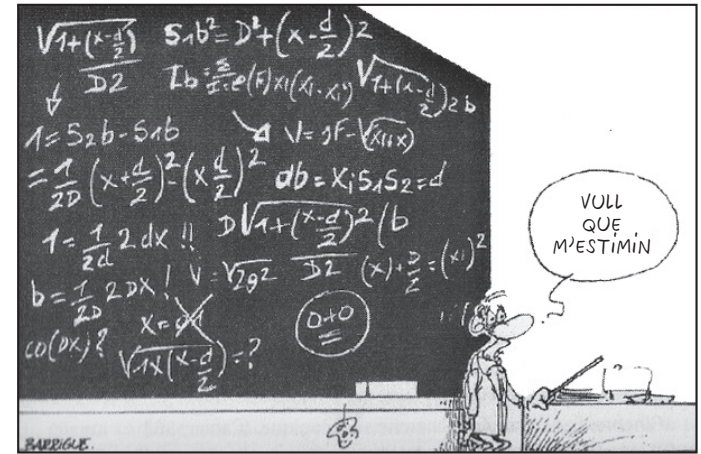 √1+(x-d/2) / D2
S1b²=D²+(x-d/2)2
√1+(x-d/2)2b
1=S2b-S1b
V=gF-√(x11x)
=1/2D (x+d/2)²-(x d/2)²
ab=XiS1S2=d
1=1/2d 2dx!!
D√1+(x-d/2)2(b
D2
b=1/2D 2DX!
V=√2g2
(x)+D/2=(x1)²
0+0
co(DX)?
√1x(x-d/2)=?
VULL
QUE
M'ESTIMIN
BARRIGUE.